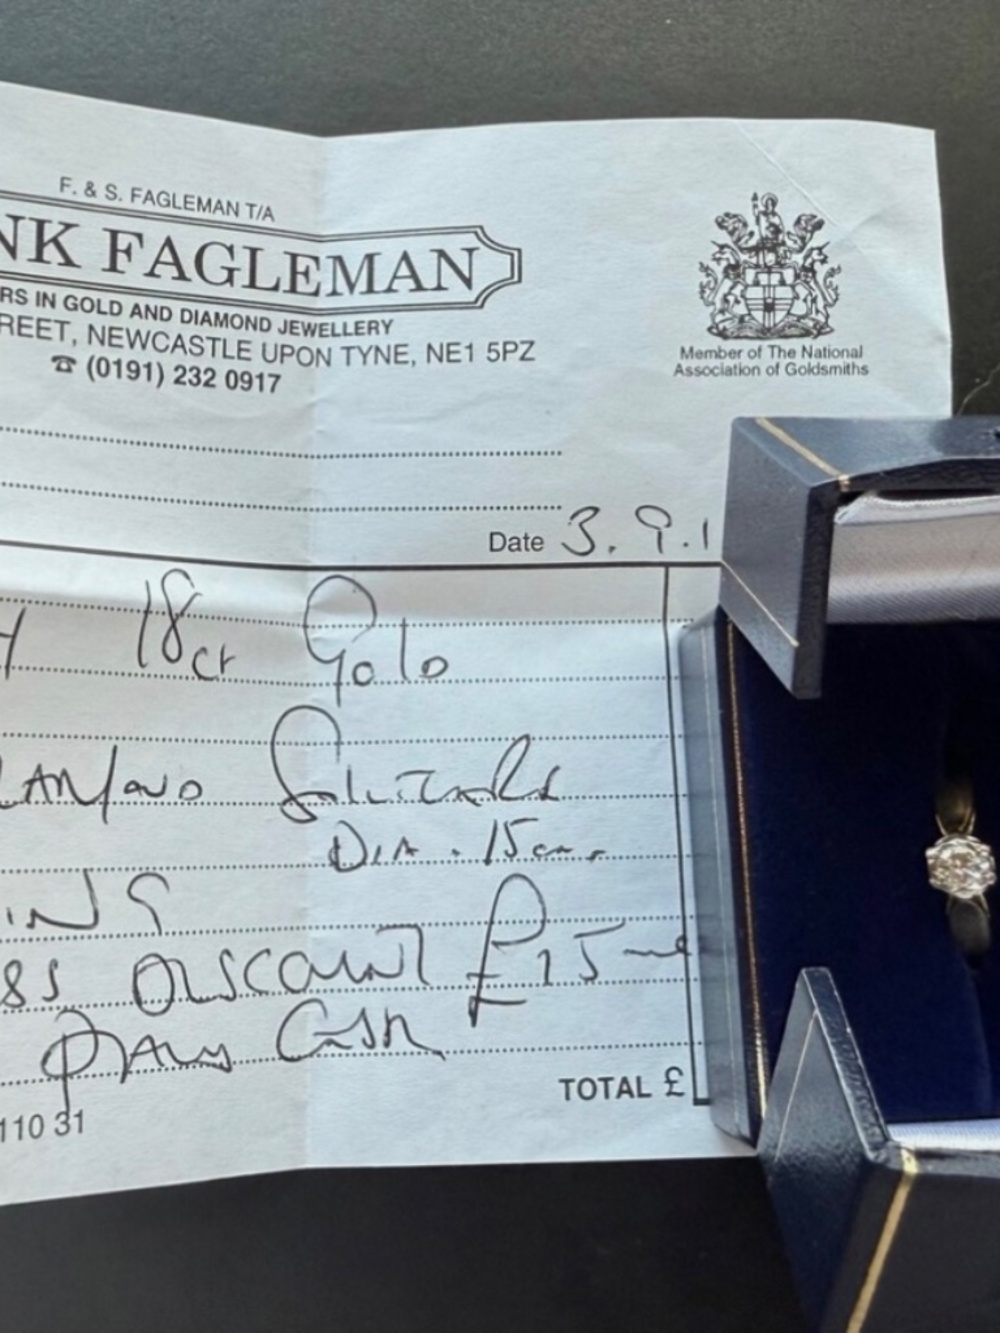 F. & S. FAGLEMAN T/A
NK FAGLEMAN
RS IN GOLD AND DIAMOND JEWELLERY
REET, NEWCASTLE UPON TYNE, NE1 5PZ
☎ (0191) 232 0917
Member of The National
Association of Goldsmiths
Date 3.9.1
18ct Gold
DIA .15
ING
DISCOUNT £15
Cash
TOTAL £
110 31